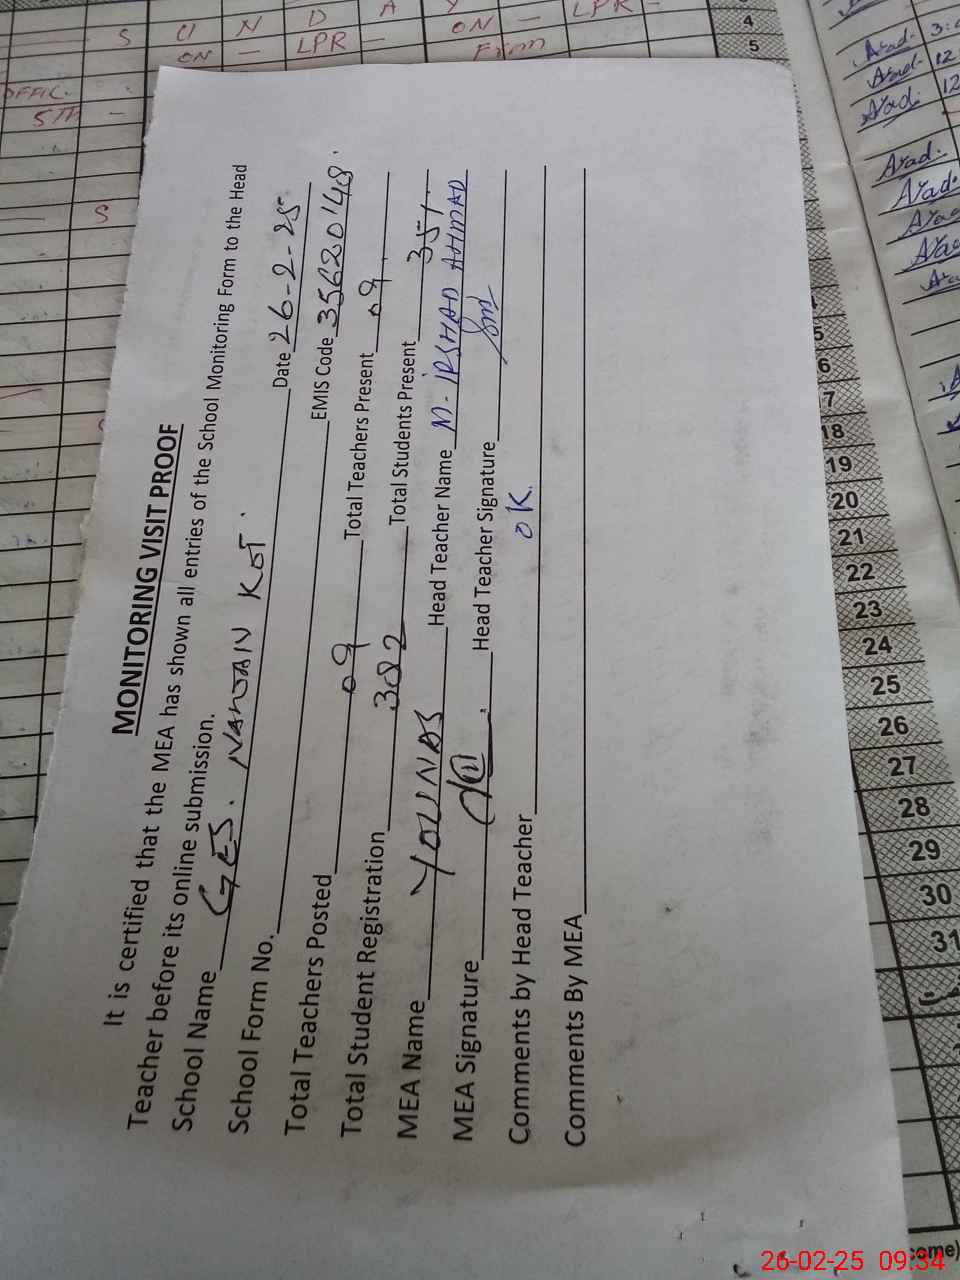 MONITORING VISIT PROOF
It is certified that the MEA has shown all entries of the School Monitoring Form to the Head
Teacher before its online submission.
School Name GES. NAWAN KOT. Date 26-2-25
School Form No. EMIS Code 35620148.
Total Teachers Posted 09 Total Teachers Present 09.
Total Student Registration 382 Total Students Present 351.
MEA Name YOUNAS Head Teacher Name M. IRSHAD AHMAD
MEA Signature Head Teacher Signature
Comments by Head Teacher OK.
Comments By MEA
S U N D A Y
ON — LPR —
ON — LPR —
From
OFFIC.
5TH —
S
4
5
5
6
7
18
19
20
21
22
23
24
25
26
27
28
29
30
31
Arad. 3:
Arad. 12
Arad. 12
Arad.
Arad.
come)
26-02-25 09:34